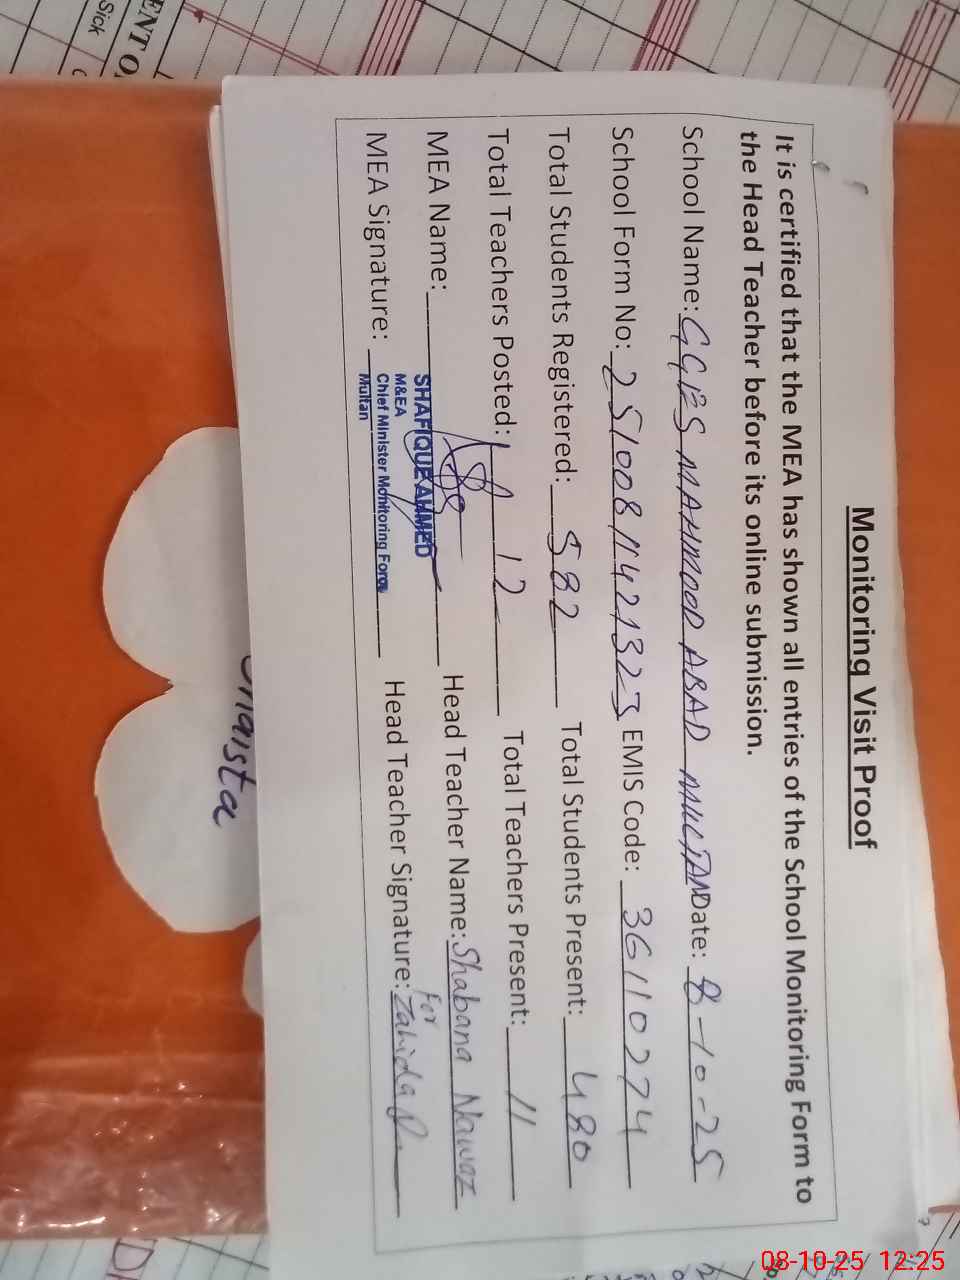 Monitoring Visit Proof
It is certified that the MEA has shown all entries of the School Monitoring Form to
the Head Teacher before its online submission.
School Name: GGPS MAHMOOD ABAD MULTAN Date: 8-10-25
School Form No: 25100811421323 EMIS Code: 36110274
Total Students Registered: 582 Total Students Present: 480
Total Teachers Posted: 12 Total Teachers Present: 11
MEA Name: SHAFIQUE AHMED Head Teacher Name: Shabana Nawaz
M&EA
Chief Minister Monitoring Force
Multan
MEA Signature: Head Teacher Signature: For Zahida
Shaista
Sick
08-10-25 12:25